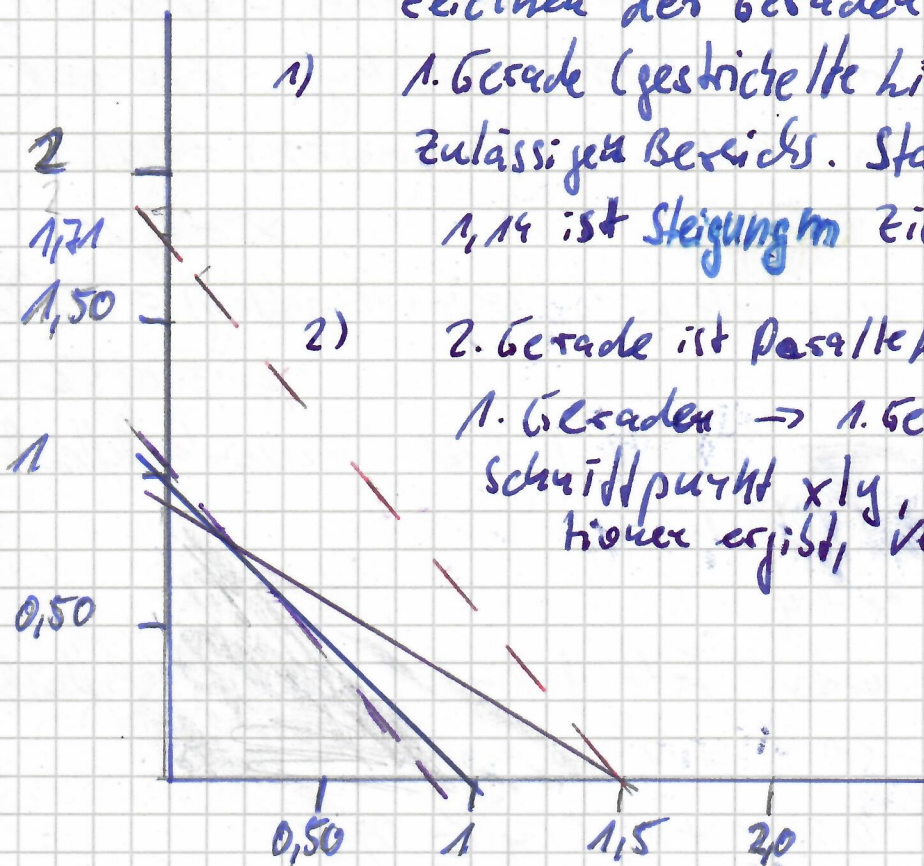 zeichnen der Geraden
1) 1. Gerade (gestrichelte Li
zulässigen Bereichs. Sta
1,14 ist Steigung m Zi
2) 2. Gerade ist Paralle
1. Geraden → 1. Ge
Schnittpunkt x|y,
tionen ergibt, Ve
2
1,71
1,50
1
0,50
0,50 1 1,5 2,0